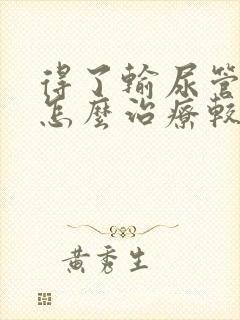 得了輸尿管
怎麼治療較
黃秀生